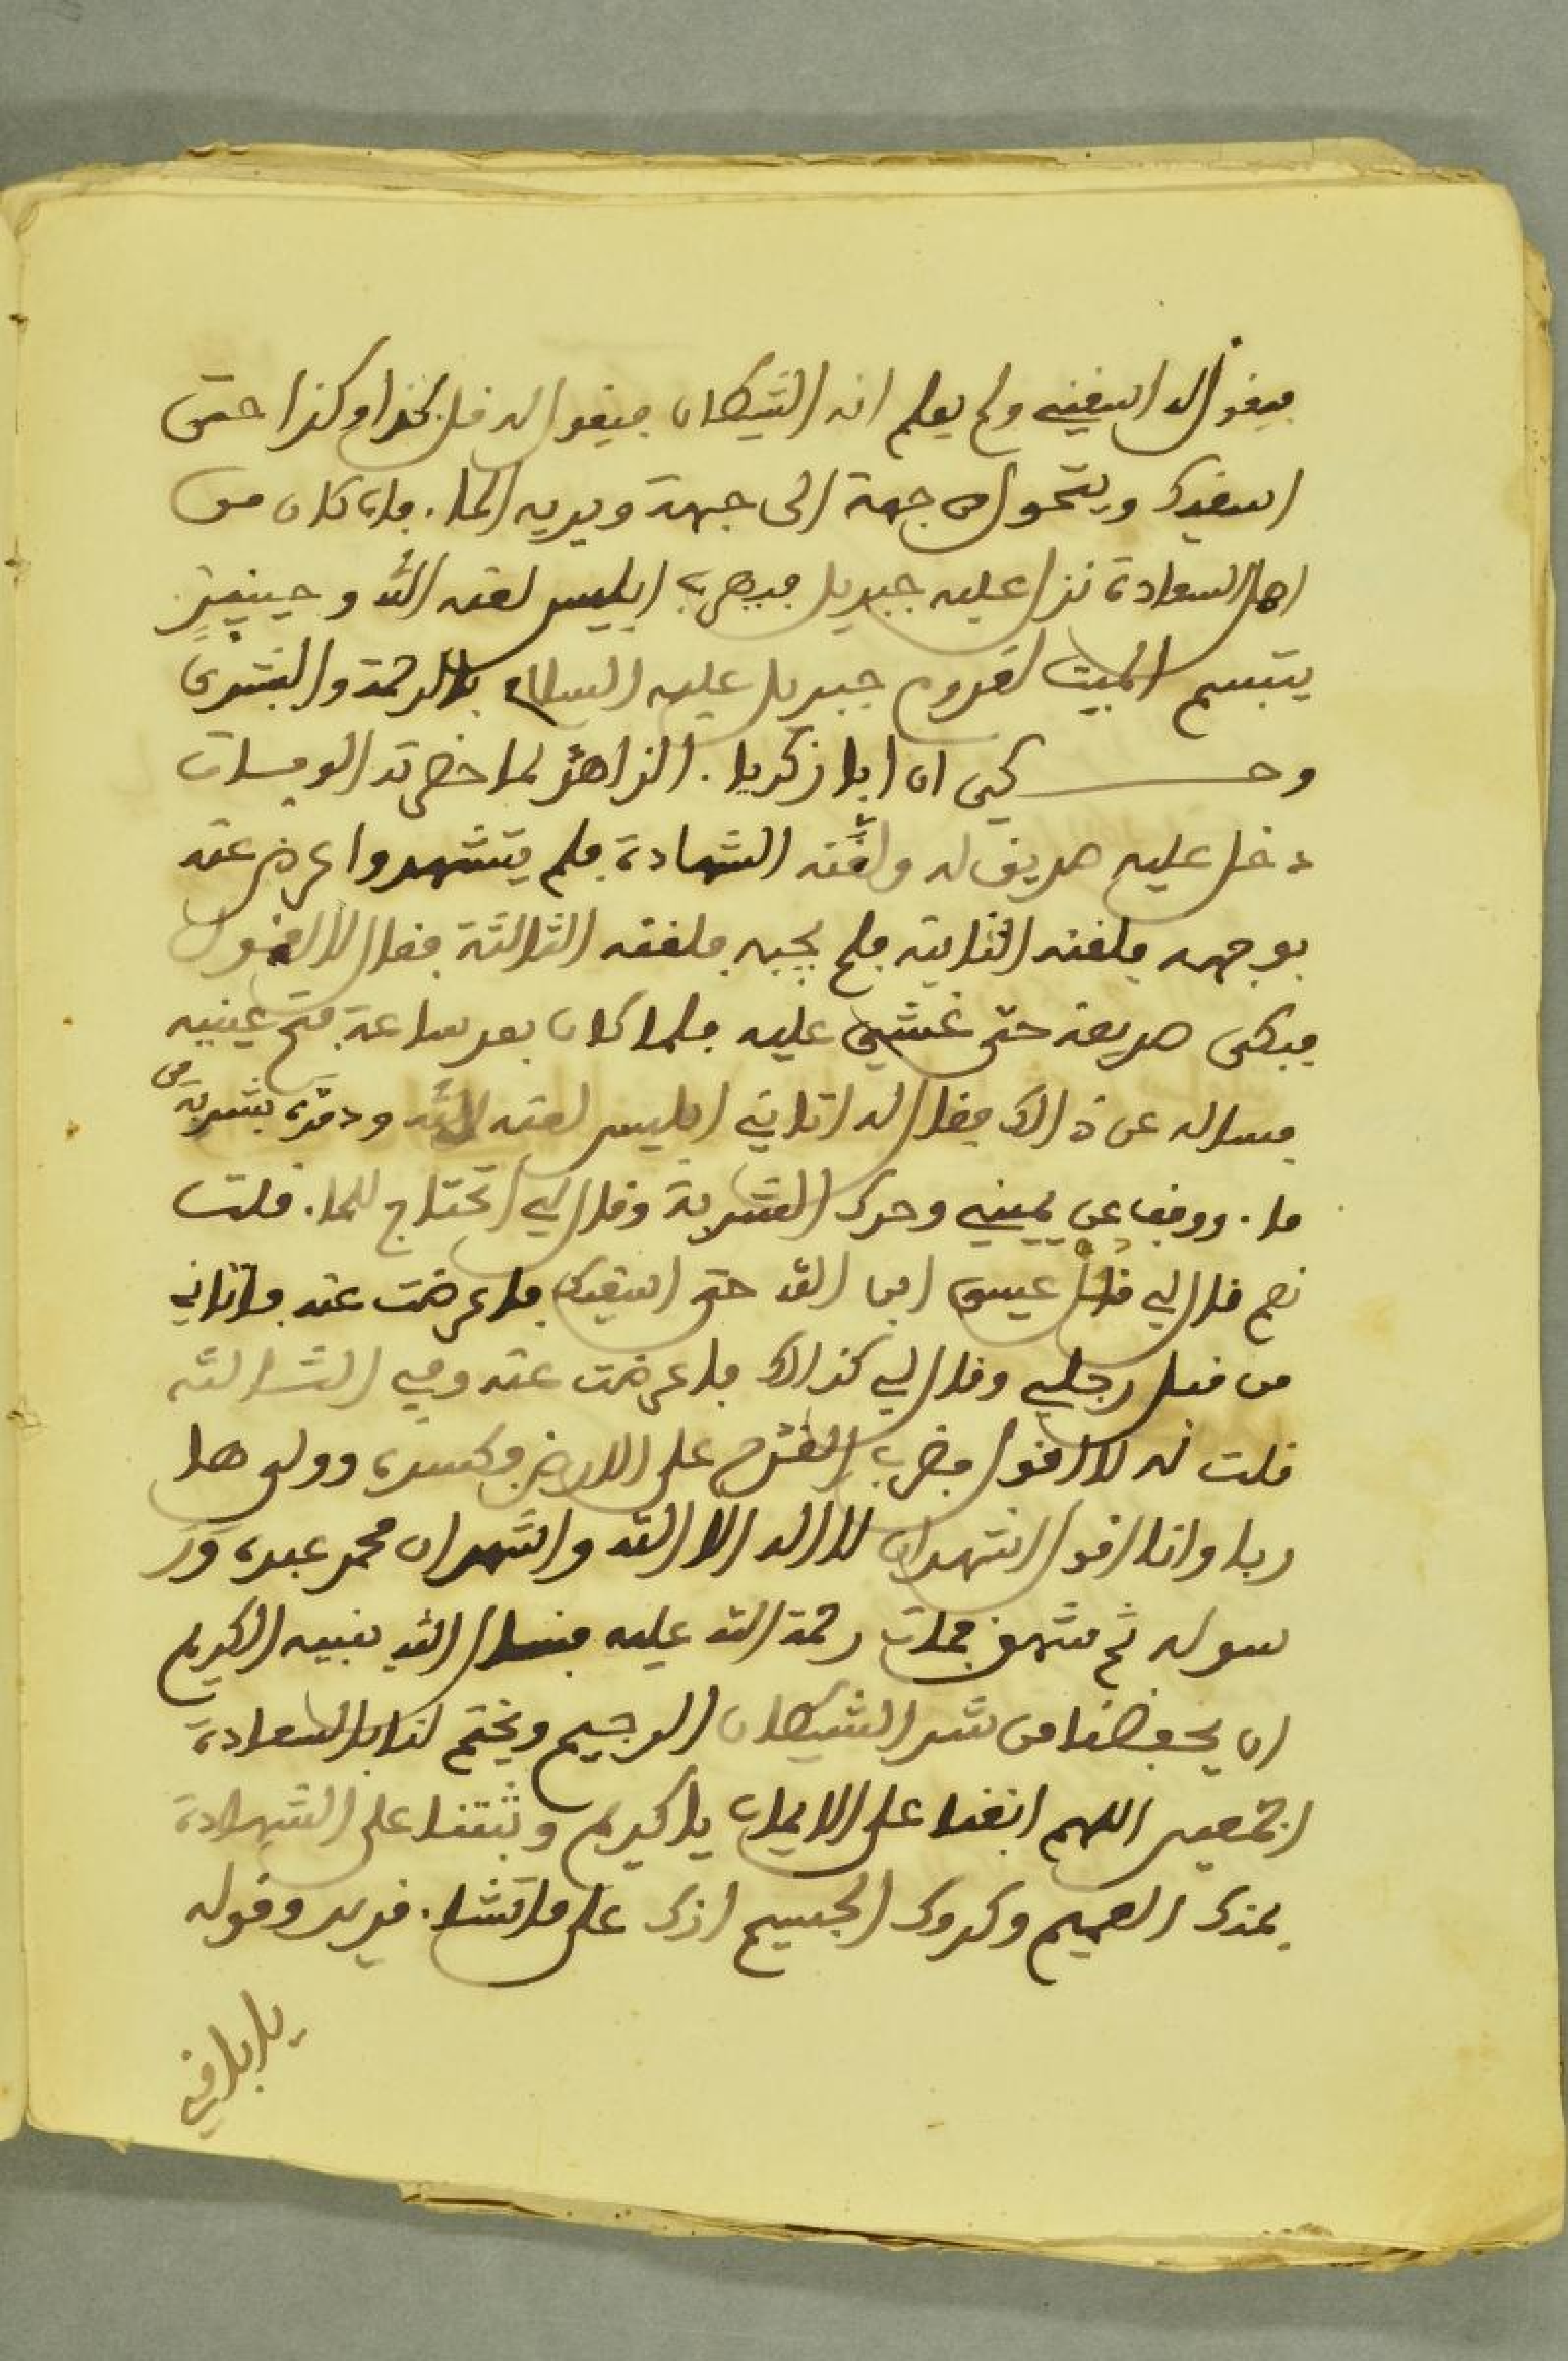 فيقول له اسقني ولم يعلم انه الشيطان فيقول له قل كذا وكذا حتى
اسقيك ويتحول من جهة الى جهة ويريه الما. فان كان من
اهل السعادة نزل عليه جبريل فيهرب ابليس لعنه الله وحينيذ
يتبسم الميت لقدوم جبريل عليه السلام بالرحمة والبشرى
وحكي ان ابا زكريا. الزاهد لما حضرته الوفات
دخل عليه صديق له ولقنه الشهادة فلم يتشهد واعرض عنه
بوجهه فلقنه الثانية فلم يجبه فلقنه الثالثة فقال لا اقول
فبكى صديقه حتى غشي عليه فلما كان بعد ساعة فتح عينيه
فساله عن ذالك فقال له اتاني ابليس لعنه الله ومعه بشربة من
ما. ووقف عن يميني وحرك الشربة وقال لي اتحتاج للما. قلت
نعم قال لي قل عيسى ابن الله حتى اسقيك فاعرضت عنه فاتاني
من قبل رجلي وقال لي كذالك فاعرضت عنه وفي الثالثة
قلت له لا اقول فضرب القدح على الارض وكسره وولى ها
ربا وانا اقول اشهد ان لا اله الا الله واشهد ان محمد عبده ور
سوله ثم شهق فمات رحمة الله عليه فنسال الله بنبيه الكريم
ان يحفظنا من شر الشيطان الرجيم ويختم لنا بالسعادة
اجمعين اللهم ابقنا على الايمان يا كريم وثبتنا على الشهادة
بمنك العميم وكرمك الجسيم انك على ما تشا. قدير وقوله
يا باقي